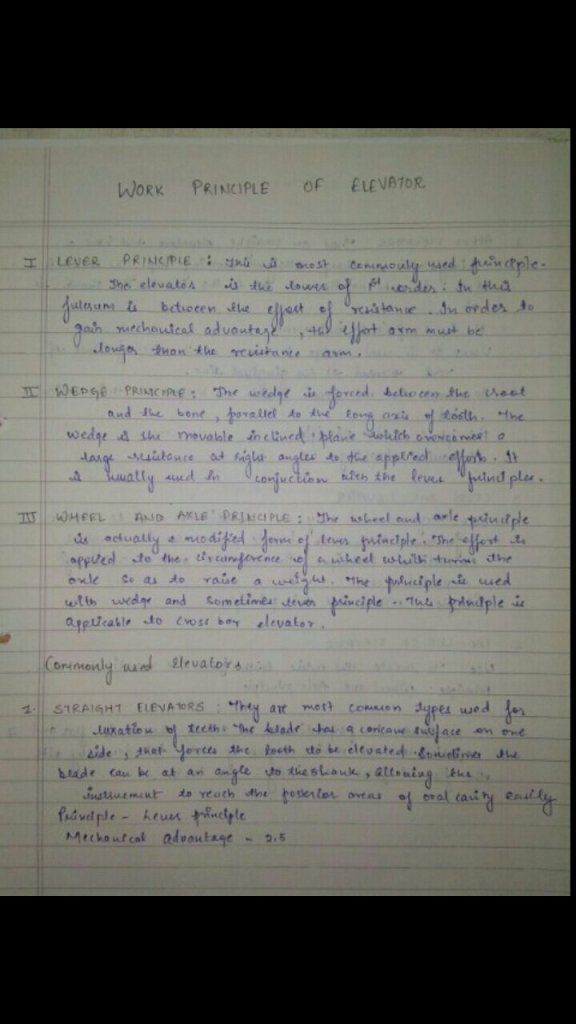 WORK PRINCIPLE OF ELEVATOR
I LEVER PRINCIPLE : This is most commonly used principle.
The elevator is the lower of 1st order. In this
fulcrum is between the effort of resistance. In order to
gain mechanical advantage, the effort arm must be
longer than the resistance arm.
II WEDGE PRINCIPLE : The wedge is forced between the root
and the bone, parallel to the long axis of tooth. The
wedge is the movable inclined plane which overcomes a
large resistance at right angles to the applied efforts. It
is usually used in conjuction with the lever principles.
III WHEEL AND AXLE PRINCIPLE : The wheel and axle principle
is actually a modified form of lever principle. The effort is
applied to the circumference of a wheel which turns the
axle so as to raise a weight. The principle is used
with wedge and sometimes lever principle. This principle is
applicable to cross bar elevator.
Commonly used Elevators
1. STRAIGHT ELEVATORS : They are most common types used for
luxation of teeth. The blade has a concave surface on one
side, that forces the tooth to be elevated. Sometimes the
blade can be at an angle to the shank, allowing the
instrument to reach the posterior areas of oral cavity easily
Principle - Lever principle
Mechanical advantage - 2.5